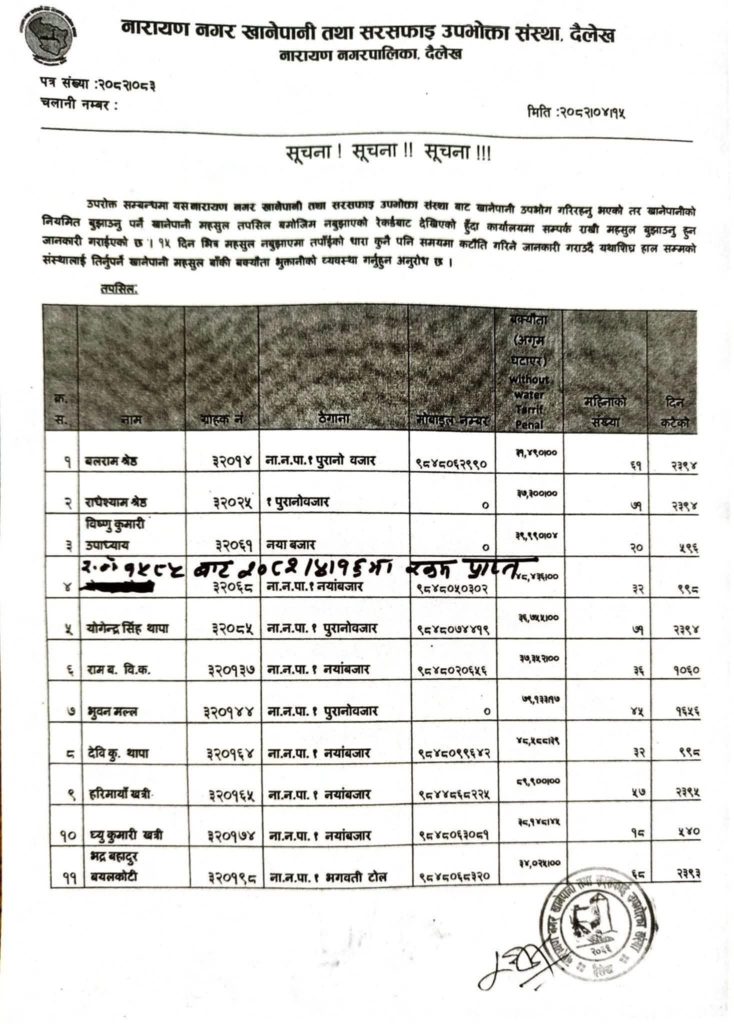 नारायण नगर खानेपानी तथा सरसफाइ उपभोक्ता संस्था, दैलेख
नारायण नगरपालिका, दैलेख
पत्र संख्या :२०८२।०८३
चलानी नम्बर :
मिति :२०८२।०४।१५
सूचना ! सूचना !! सूचना !!!
उपरोक्त सम्बन्धमा यस नारायण नगर खानेपानी तथा सरसफाइ उपभोक्ता संस्था बाट खानेपानी उपभोग गरिरहनु भएको तर खानेपानीको
नियमित बुझाउनु पर्ने खानेपानी महसुल तपसिल बमोजिम नबुझाएको रेकर्डबाट देखिएको हुँदा कार्यालयमा सम्पर्क राखी महसुल बुझाउनु हुन
जानकारी गराईएको छ । १५ दिन भित्र महसुल नबुझाएमा तपाँईको धारा कुनै पनि समयमा कटौति गरिने जानकारी गराउदै यथाशिघ्र हाल सम्मको
संस्थालाई तिर्नुपर्ने खानेपानी महसुल बाँकी बक्यौता भुक्तानीको व्यवस्था गर्नुहुन अनुरोध छ ।
तपसिल:
क्र. स. नाम ग्राहक नं ठेगाना मोबाइल नम्बर बक्यौता (अगृम घटाएर) without water Tarrif Penal महिनाको संख्या दिन कटेको
१ बलराम श्रेष्ठ ३२०१४ ना.न.पा.१ पुरानो बजार ९८४८०६२९९० ३१,४९०।०० ६१ २३९४
२ राधेश्याम श्रेष्ठ ३२०२५ १ पुरानोवजार ० ३७,३००।०० ७१ २३९४
३ विष्णु कुमारी उपाध्याय ३२०६१ नया बजार ० ३९,९९०।०४ २० ५९६
र.नं १५८५ बाट २०८२/४/१६मा रकम प्राप्त
४ ३२०६८ ना.न.पा.१ नयांबजार ९८४८०५०३०२ ४८,४३६।०० ३२ ९९८
५ योगेन्द्र सिंह थापा ३२०८५ ना.न.पा. १ पुरानोवजार ९८४८०७४४१९ ३६,७५५।०० ७१ २३९४
६ राम ब. वि.क. ३२०१३७ ना.न.पा. १ नयांबजार ९८४८०२०६५६ ३७,३५२।०० ३६ १०६०
७ भुवन मल्ल ३२०१४४ ना.न.पा. १ पुरानोवजार ० ७९,१३३।१७ ४५ १६५६
८ देवि कु. थापा ३२०१६४ ना.न.पा. १ नयांबजार ९८४८०९९६४२ ४८,५८८।३९ ३२ ९९८
९ हरिमायाँ खत्री ३२०१६५ ना.न.पा. १ नयांबजार ९८४४८६८२२५ ८९,९००।०० ५७ २३९५
१० घ्यु कुमारी खत्री ३२०१७४ ना.न.पा. १ नयांबजार ९८४८०६३०८१ ३८,१४८।४५ १८ ५४०
११ भद्र बहादुर बयलकोटी ३२०१९८ ना.न.पा. १ भगवती टोल ९८४८०६८३२० ३४,०२५।०० ६८ २३९३